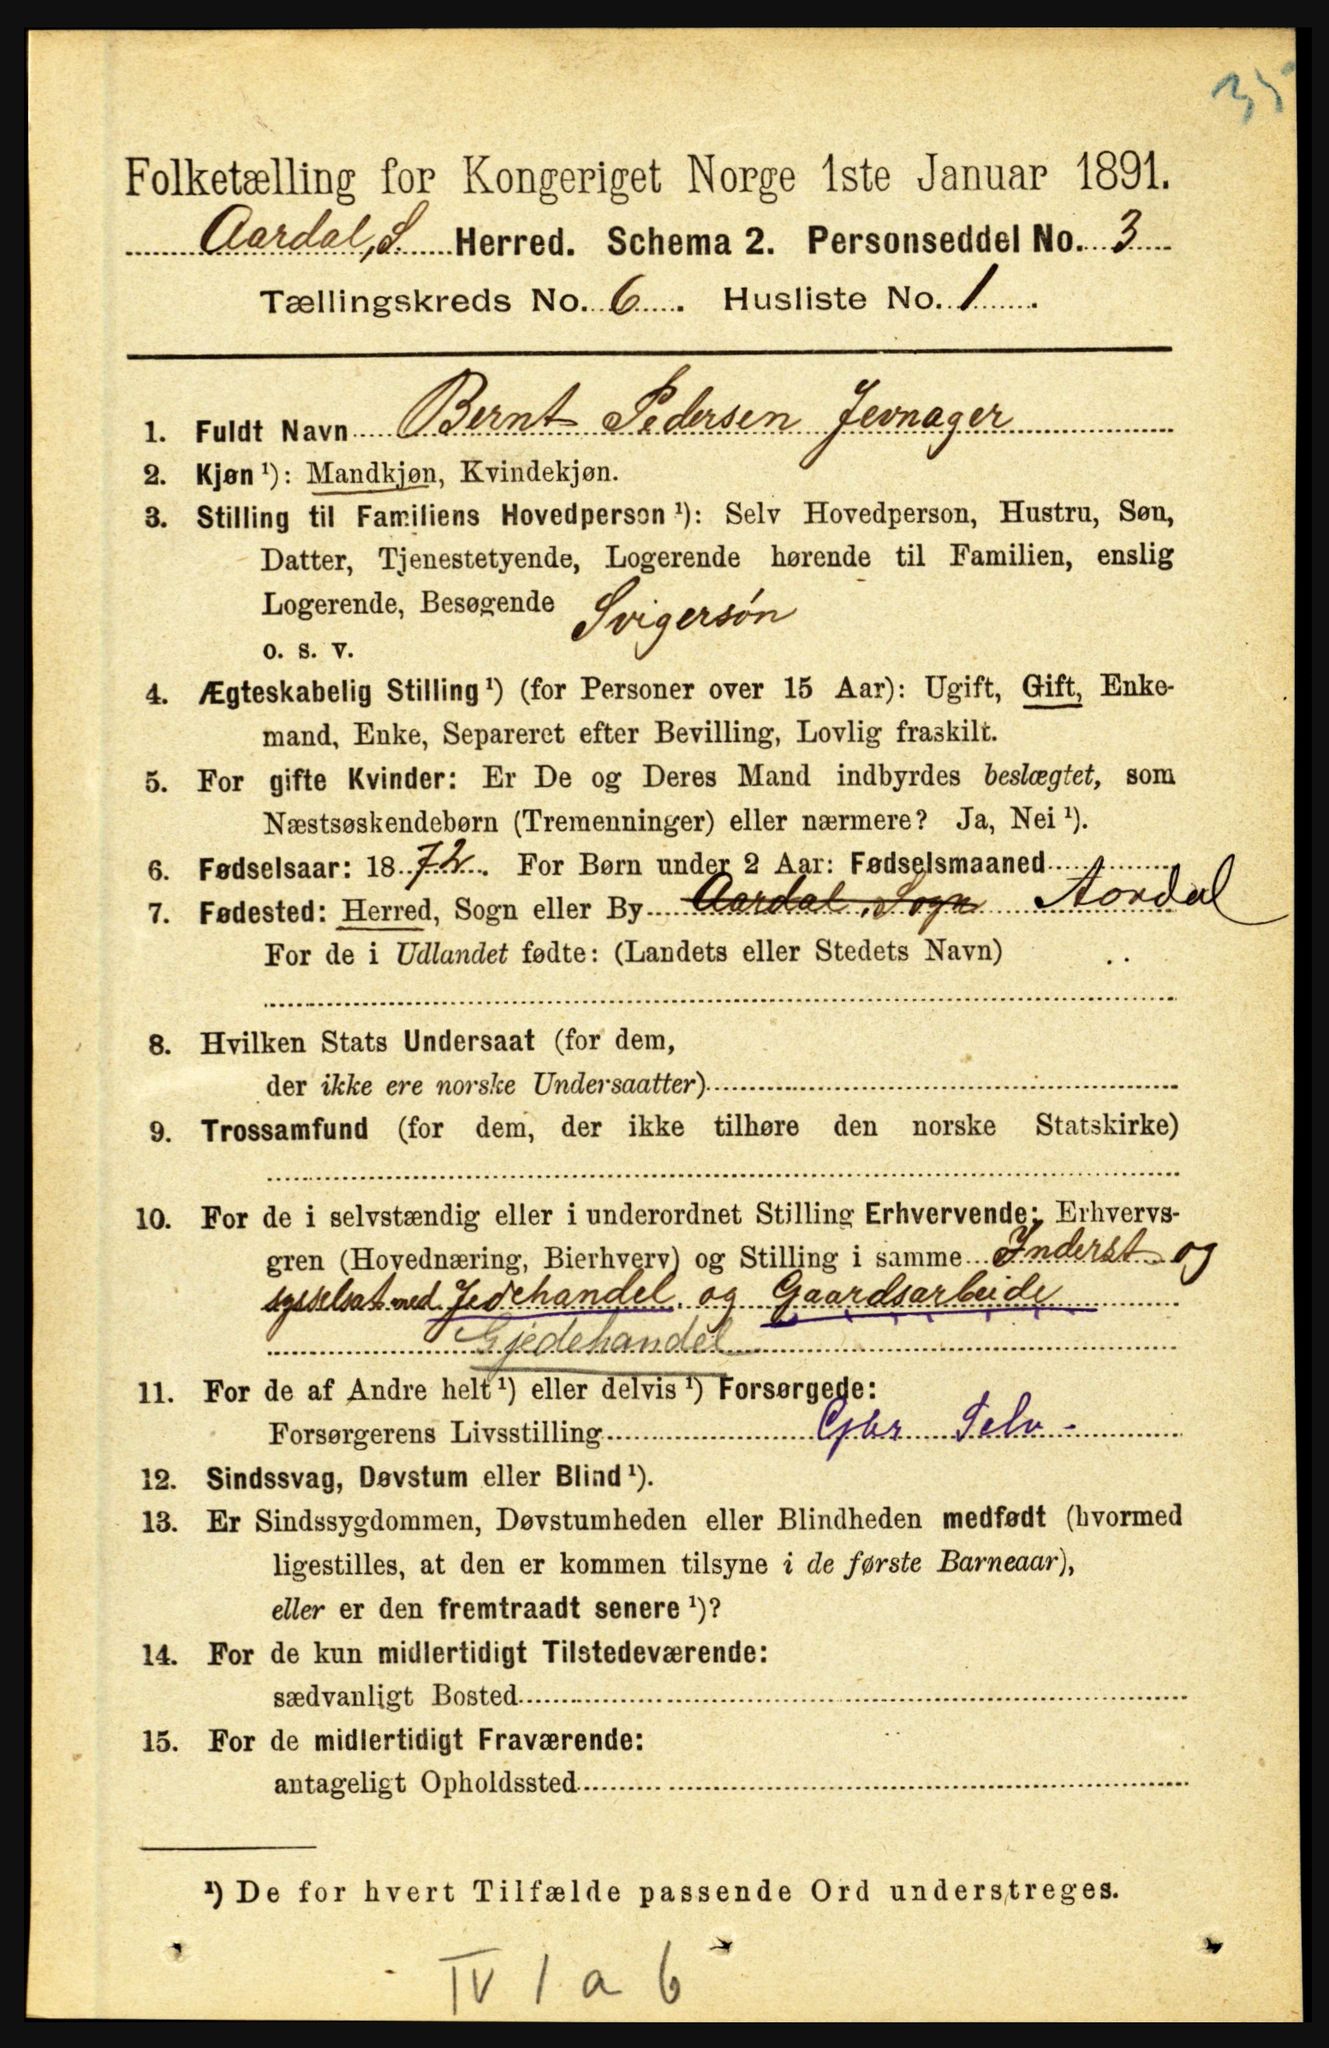 35
Folketælling for Kongeriget Norge 1ste Januar 1891.
Aardal, S Herred. Schema 2. Personseddel No. 3
Tællingskreds No. 6. Husliste No. 1.
1. Fuldt Navn Bernt Pedersen Jevnager
2. Kjøn ¹): Mandkjøn, Kvindekjøn.
3. Stilling til Familiens Hovedperson ¹): Selv Hovedperson, Hustru, Søn,
Datter, Tjenestetyende, Logerende hørende til Familien, enslig
Logerende, Besøgende Svigersøn
o. s. v.
4. Ægteskabelig Stilling ¹) (for Personer over 15 Aar): Ugift, Gift, Enke-
mand, Enke, Separeret efter Bevilling, Lovlig fraskilt.
5. For gifte Kvinder: Er De og Deres Mand indbyrdes beslægtet, som
Næstsøskendebørn (Tremenninger) eller nærmere? Ja, Nei ¹).
6. Fødselsaar: 1872. For Børn under 2 Aar: Fødselsmaaned
7. Fødested: Herred, Sogn eller By Aardal, Sogn Aardal
For de i Udlandet fødte: (Landets eller Stedets Navn)
8. Hvilken Stats Undersaat (for dem,
der ikke ere norske Undersaatter)
9. Trossamfund (for dem, der ikke tilhøre den norske Statskirke)
10. For de i selvstændig eller i underordnet Stilling Erhvervende: Erhvervs-
gren (Hovednæring, Bierhverv) og Stilling i samme Inderst og
sysselsat med Jedehandel og Gaardsarbeide
Gjedehandel
11. For de af Andre helt ¹) eller delvis ¹) Forsørgede:
Forsørgerens Livsstilling Gbr Selv -
12. Sindssvag, Døvstum eller Blind ¹).
13. Er Sindssygdommen, Døvstumheden eller Blindheden medfødt (hvormed
ligestilles, at den er kommen tilsyne i de første Barneaar),
eller er den fremtraadt senere ¹)?
14. For de kun midlertidigt Tilstedeværende:
sædvanligt Bosted
15. For de midlertidigt Fraværende:
antageligt Opholdssted
¹) De for hvert Tilfælde passende Ord understreges.
IV 1 a b